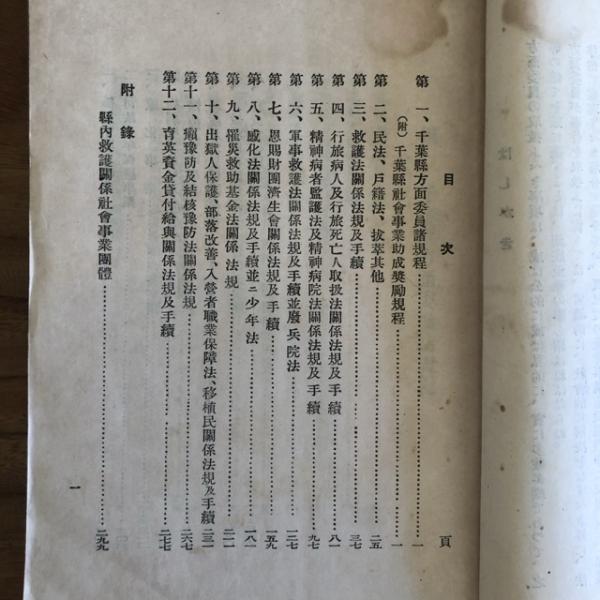 目次
頁
第一、千葉縣方面委員諸規程……一
(附)千葉縣社會事業助成奬勵規程……一
第二、民法、戶籍法、拔萃其他……二五
第三、救護法關係法規及手續……三七
第四、行旅病人及行旅死亡人取扱法關係法規及手續……八一
第五、精神病者監護法及精神病院法關係法規及手續……九七
第六、軍事救護法關係法規及手續並廢兵院法……一二七
第七、恩賜財團濟生會關係法規及手續……一五九
第八、感化法關係法規及手續並ニ少年法……一八一
第九、罹災救助基金法關係法規……二一一
第十、出獄人保護、部落改善、入營者職業保障法、移植民關係法規及手續……二三一
第十一、癩豫防及結核豫防法關係法規……二六七
第十二、育英資金貸付給與關係法規及手續……二七七
附錄
縣內救護關係社會事業團體……二九九
一
はしがき